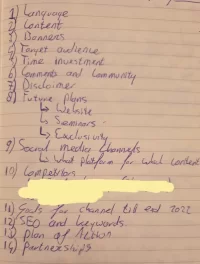 1) Language
2) Content
3) Banners
4) Target audience
5) Time investment
6) Comments and Community
7) Disclaimer
8) Future plans
↳ Website
↳ Seminars
↳ Exclusivity
9) Social media channels
↳ What platform for what content
10) Competitors
11) Goals for channel till end 2022
12) SEO and keywords
13) Plan of Action
14) Partnerships